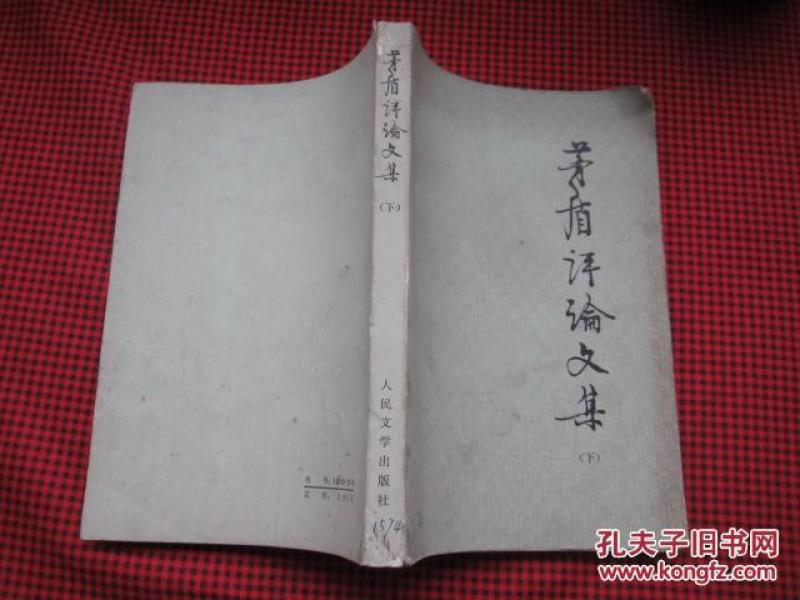 茅盾评论文集
(下)
人民文学出版社
1574
茅盾评论文集
(下)
书号
定价
孔夫子旧书网
www.kongfz.com